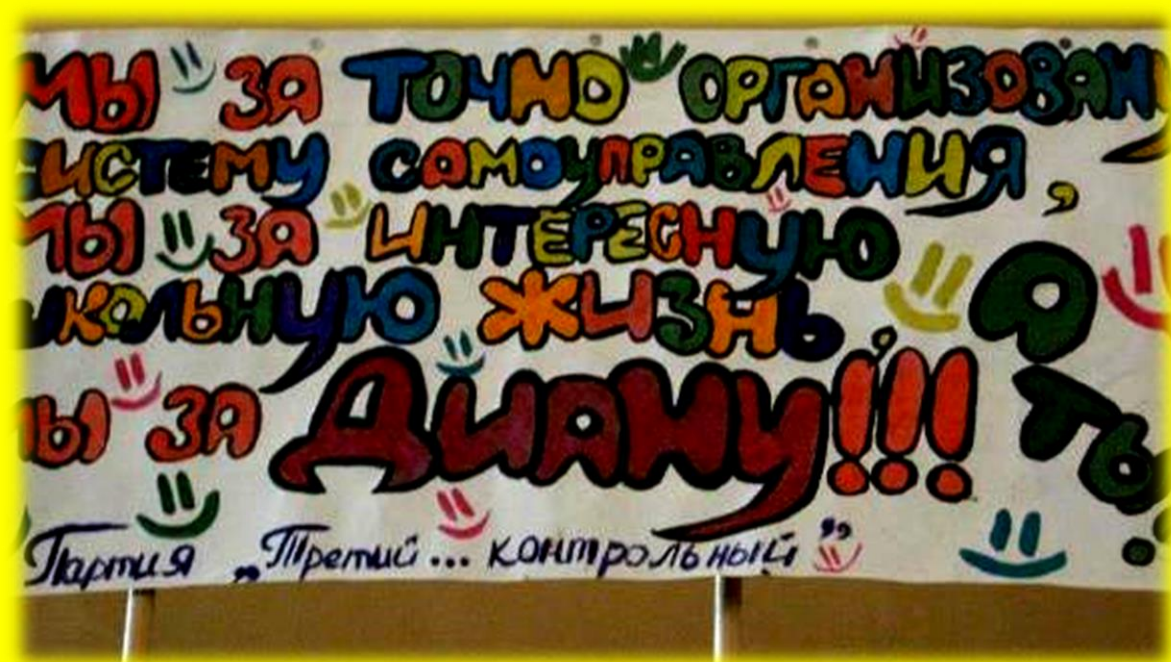 МЫ ЗА ТОЧНО ОРГАНИЗОВАН
СИСТЕМУ САМОУПРАВЛЕНИЯ,
МЫ ЗА ИНТЕРЕСНУЮ
ШКОЛЬНУЮ ЖИЗНЬ,
МЫ ЗА ДИАНУ!!!
Партия „Третий... контрольный”
А
ТЫ?